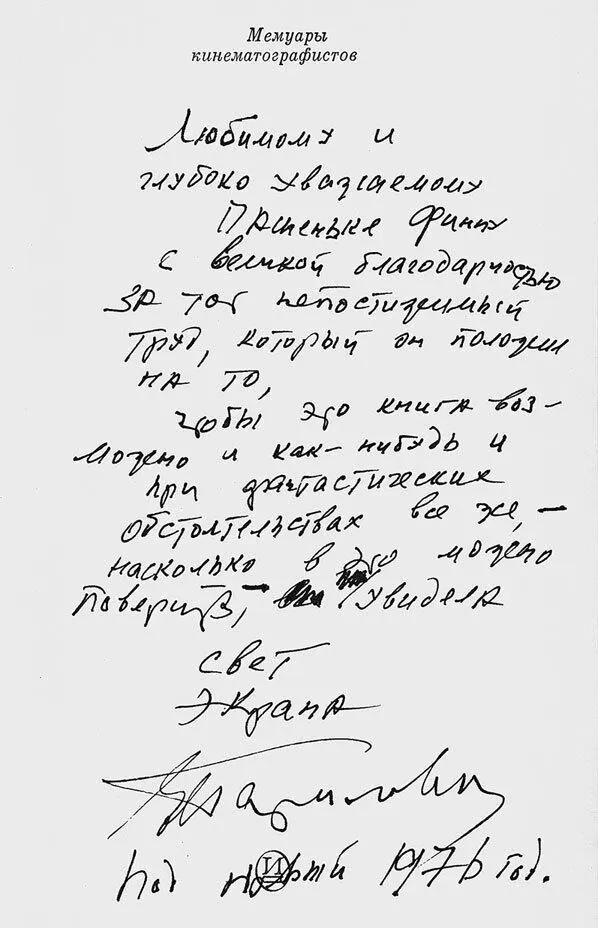 Мемуары
кинематографистов
Любимому и
глубоко уважаемому
Пашеньке Финну
с великой благодарностью
за тот непостижимый
труд, который он положил
на то,
чтобы эта книга воз-
можно и как-нибудь и
при фантастических
обстоятельствах все же, –
насколько в это можно
поверить, – увидела
свет
экрана
Габрилович
И
Под новый 1976 год.